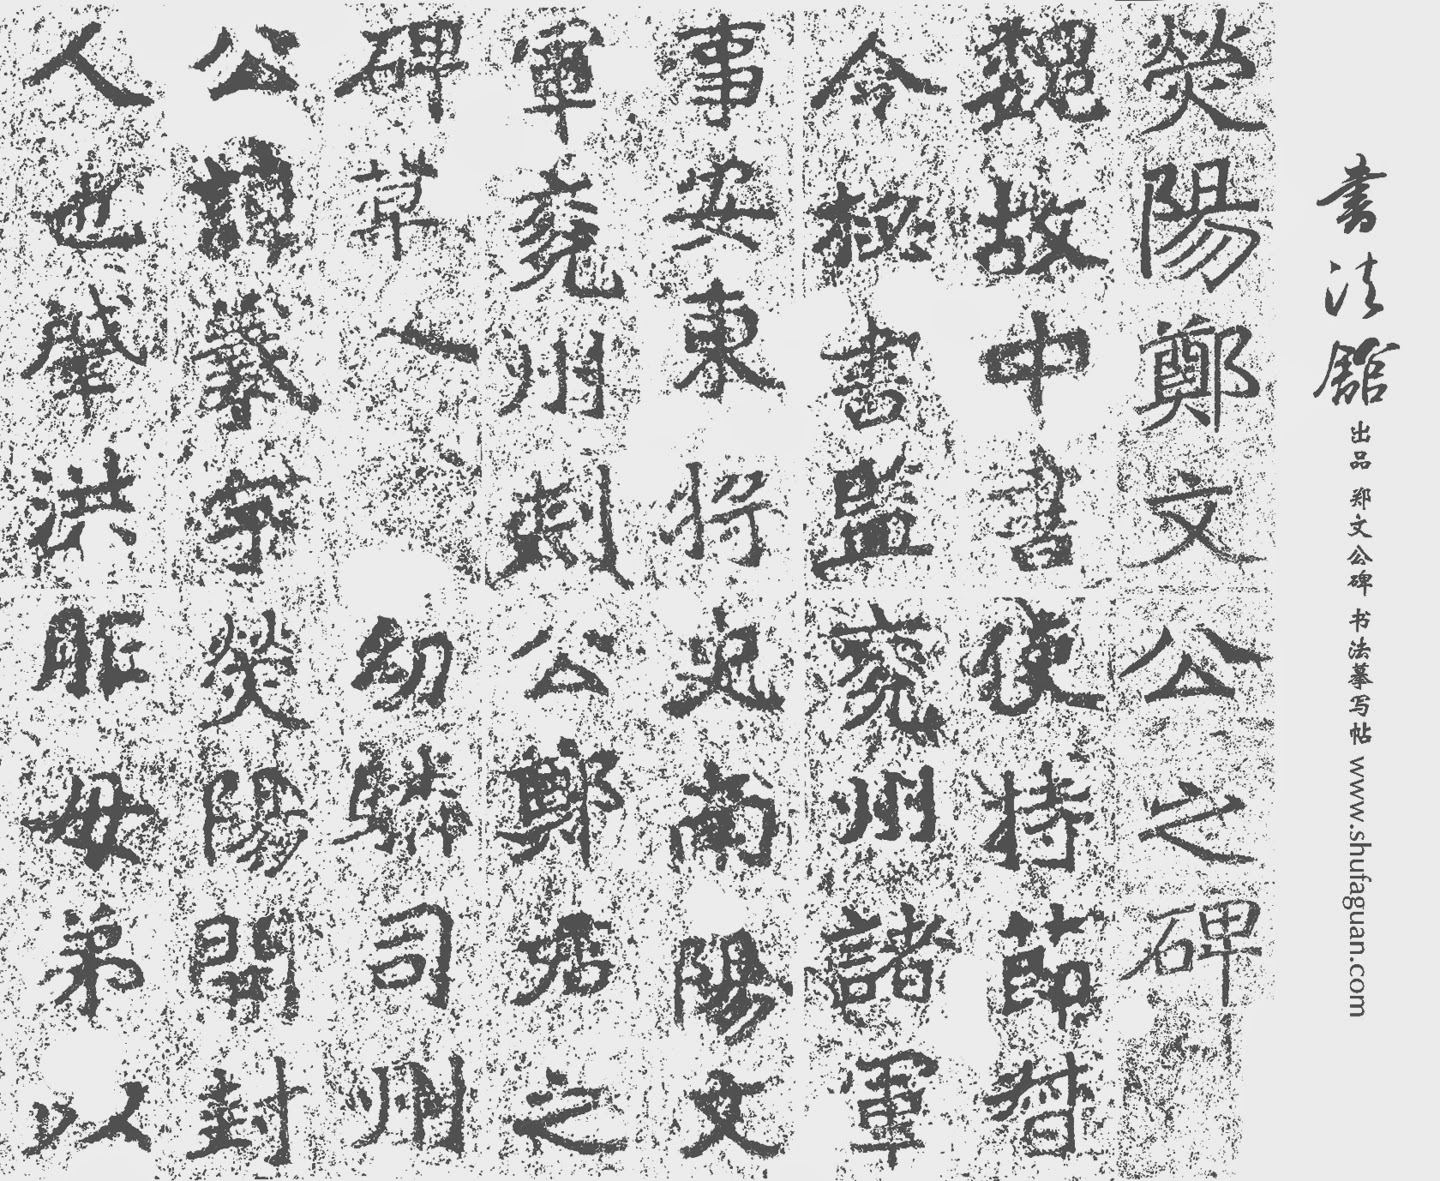 書法舘 出品 郑文公碑 书法摹写帖 www.shufaguan.com
熒陽鄭文公之碑
魏故中書使持節督
令秘書監兖州諸軍
事安東將史南陽文
軍兖州刺公鄭君之
碑草一幼驎司州
公諱羲字熒陽開封
人也肇洪胙母弟以